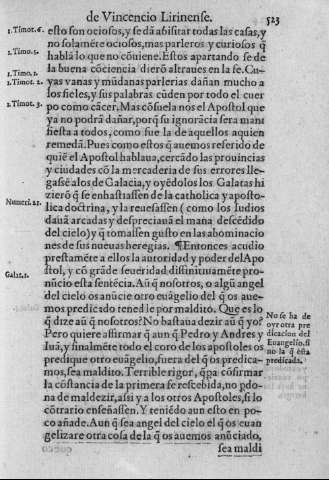 de Vincencio Lirinense.
523
1. Timot. 6.
esto son ociosos, y se dã a visitar todas las casas, y
no solamẽte ociosos, mas parleros y curiosos q̃
1. Timot. 5.
hablã lo que no cõuiene. Estos apartando se de
1. Timo. 1.
la buena cõciencia dierõ al traues en la fe. Cu-
1. Timot. 2.
yas vanas y mũdanas parlerias dañan mucho a
los fieles, y sus palabras cũden por todo el cuer
1. Timot. 3.
po como cãcer. Mas cõsuela nos el Apostol que
ya no podrã dañar, porq̃ su ignorãcia sera mani
fiesta a todos, como fue la de aquellos aquien
remedã. Pues como estos q̃ auemos referido de
quiẽ el Apostol hablaua, cercãdo las prouincias
y ciudades cõ la mercaderia de sus errores lle-
gassẽ alos de Galacia, y oyẽdolos los Galatas hi
zierõ q̃ se enhastiassẽn de la catholica y aposto-
Numeri. 21.
lica doctrina, y la reuessassen (como los iudios
dauã arcadas y despreciauã el mana descẽdido
del cielo) y q̃ tomassẽn gusto en las abominacio
nes de sus nueuas heregias. ¶Entonces acudio
prestamẽte a ellos la autoridad y poder del Apo
Galat. 1.
stol, y cõ grãde seueridad diffinituamẽte pro-
nũcio esta sentẽcia. Aũ q̃ nosotros, o algũ angel
del cielo os anũcie otro euãgelio del q̃ os aue-
mos predicado tened le por maldito. Que es lo
q̃ dize aũ q̃ nosotros? No bastaua dezir aũ q̃ yo?
No se ha de
oyr otra pre
dicacion del
Euangelio, si
no la q̃ està
predicada.
Pero quiere affirmar q̃ aun q̃ Pedro y Andres y
Iuã, y finalmẽte todo el coro de los apostoles os
predique otro euãgelio, fuera del q̃ os predica-
mos, sea maldito. Terrible rigor, q̃ pa cõfirmar
la cõstancia de la primera fe rescebida, no pdo-
na de maldezir, assi y a los otros Apostoles, si lo
cõtrario enseñassẽn. Y teniẽdo aun esto en po-
co añade. Aun q̃ sea angel del cielo el q̃ os euan
gelizare otra cosa de la q̃ os auemos anũciado,
sea maldi